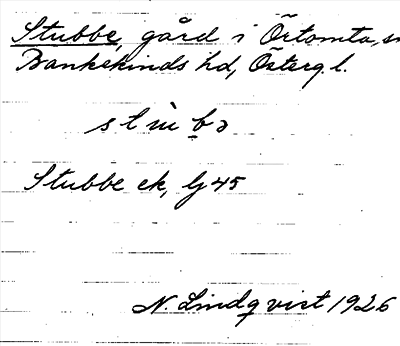 Stubbe, gård i Örtomta, sn
Bankekinds hd, Österg.l.
stubbe ek, lj 45
N Lindqvist 1926